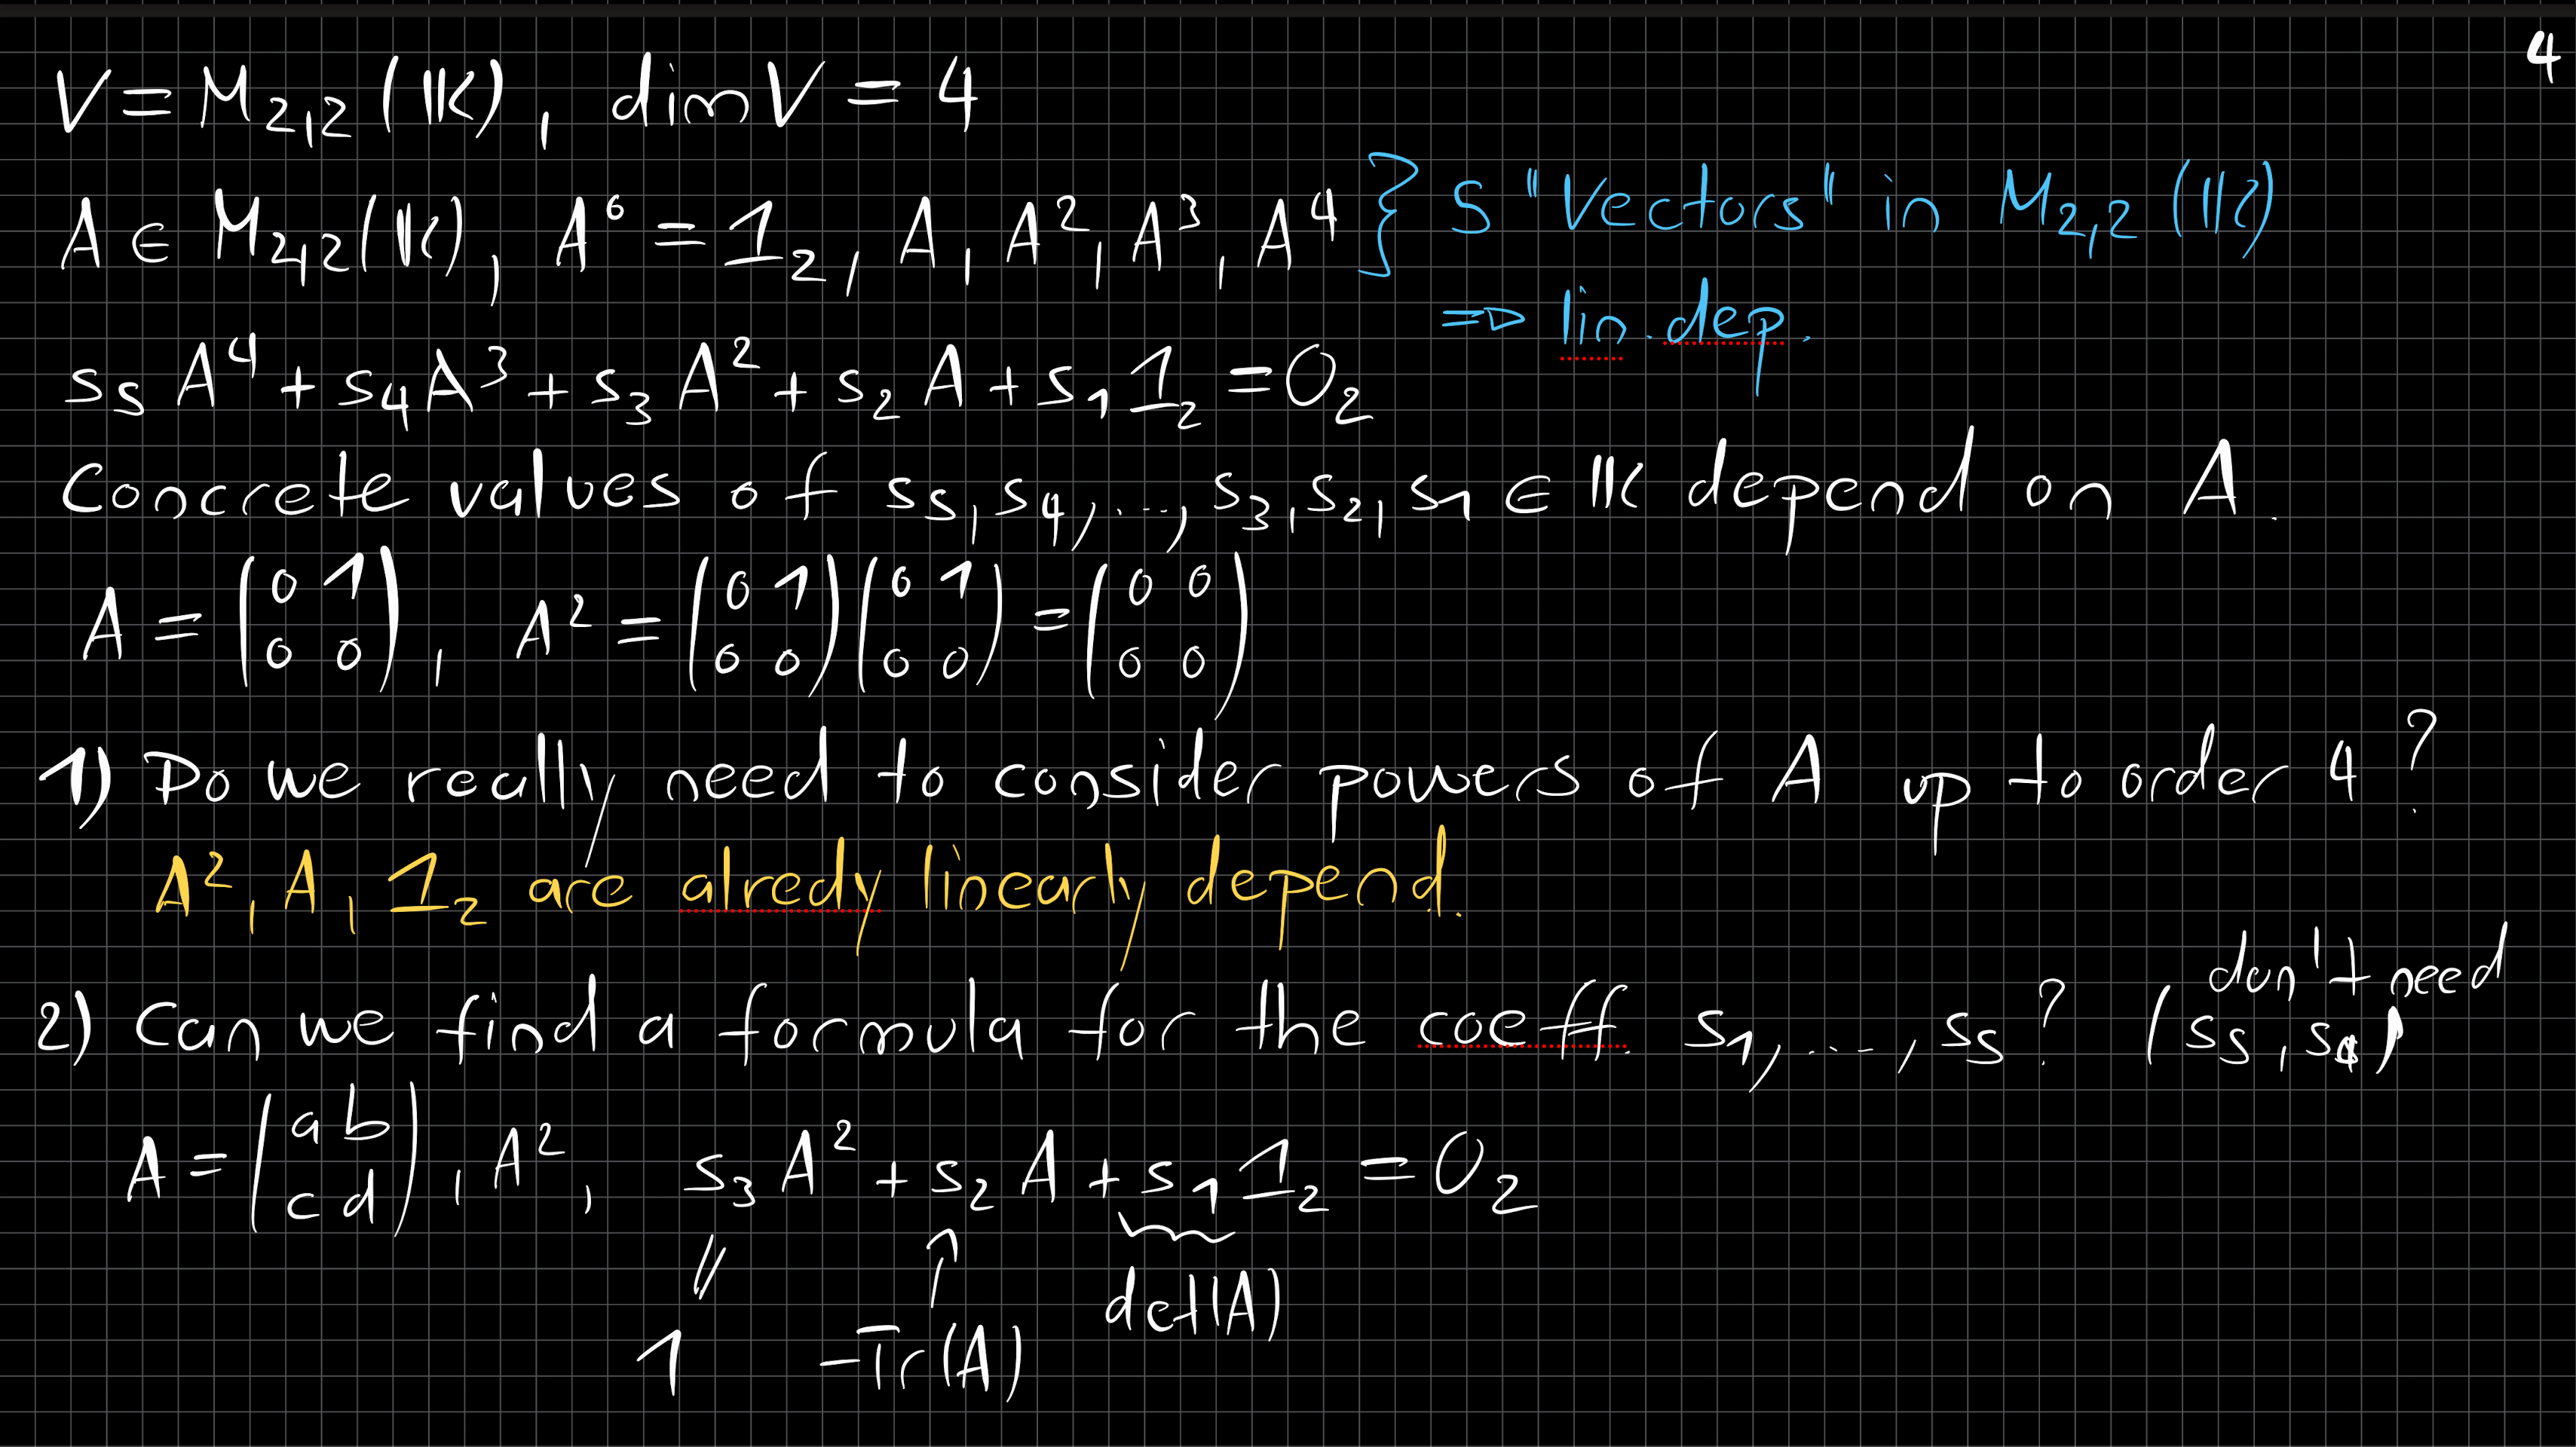 4
V = M₂,₂(𝕂), dim V = 4
A ∈ M₂,₂(𝕂), A⁰ = 𝟙₂, A, A², A³, A⁴ } 5 "Vectors" in M₂,₂(𝕂)
⇒ lin. dep.
s₅ A⁴ + s₄ A³ + s₃ A² + s₂ A + s₁ 𝟙₂ = 0₂
Concrete values of s₅, s₄, ..., s₃, s₂, s₁ ∈ 𝕂 depend on A.
A = (0 1 / 0 0), A² = (0 1 / 0 0)(0 1 / 0 0) = (0 0 / 0 0)
1) Do we really need to consider powers of A up to order 4?
A², A, 𝟙₂ are alredy linearly depend.
2) Can we find a formula for the coeff. s₁, ..., s₅? (don't need s₅, s₄)
A = (a b / c d), A², s₃ A² + s₂ A + s₁ 𝟙₂ = 0₂
= ↑ det(A)
1 -Tr(A)